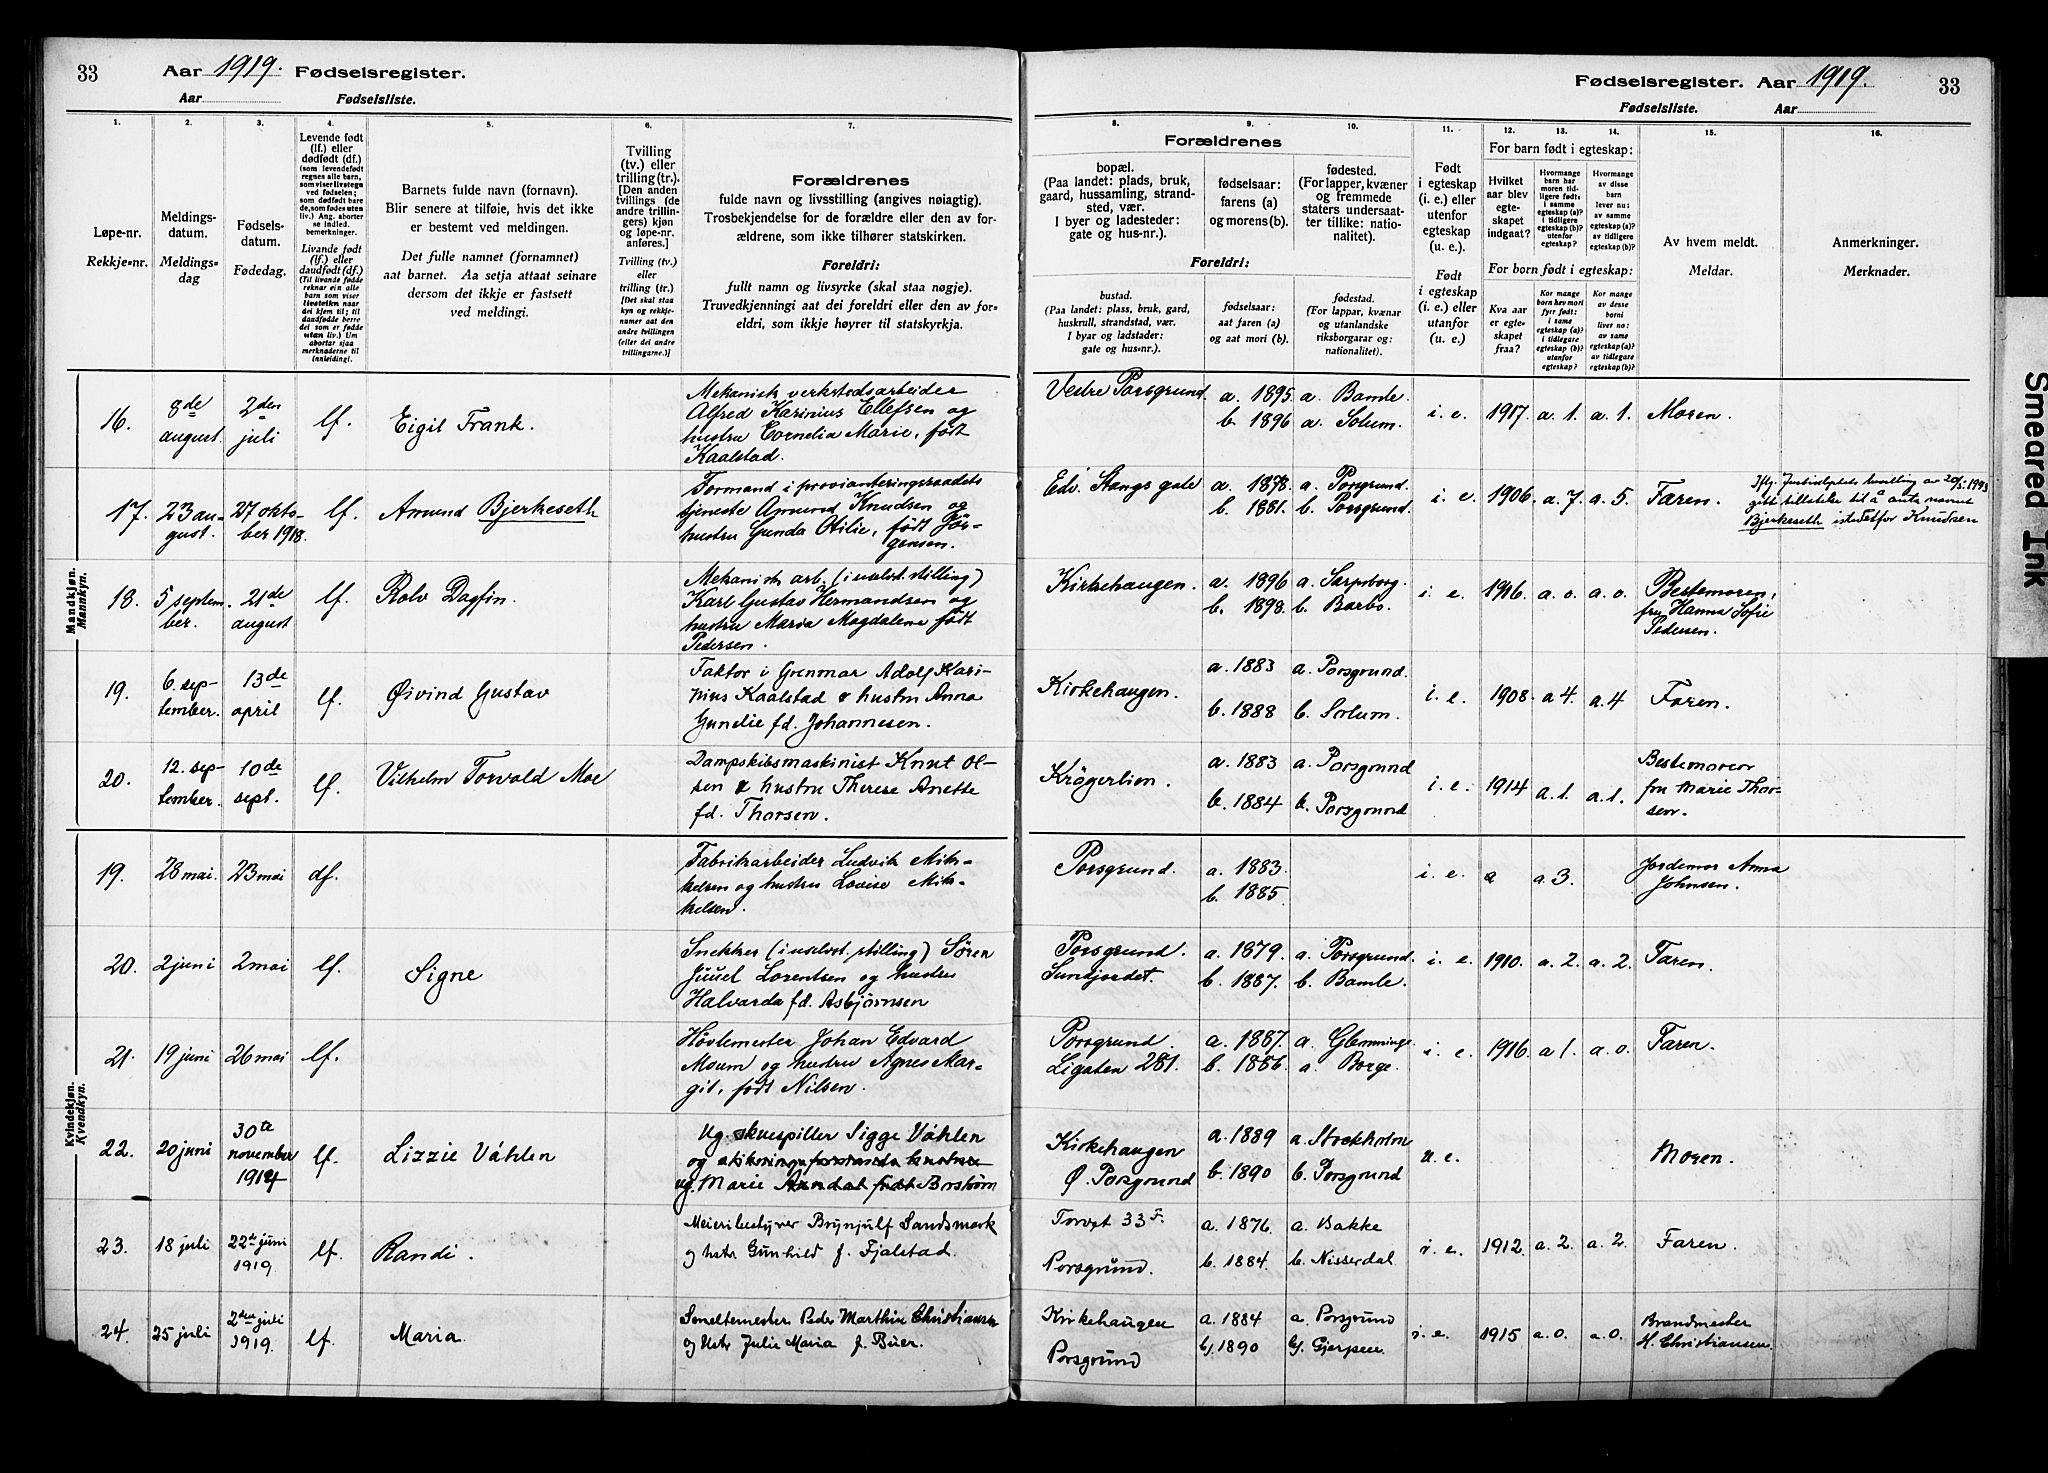 33 Aar 1919. Fødselsregister.
Aar Fødselsliste.
Fødselsregister. Aar 1919. 33
Fødselsliste. Aar
1. 2. 3. 4. 5. 6. 7.
Løpe-nr.
Rekkje-nr.
Meldings-
datum.
Meldings-
dag
Fødsels-
datum.
Fødedag.
Levende født
(lf.) eller
dødfødt (df.)
(som levendefødt
regnes alle barn,
som viser livstegn
ved fødselen;
som dødfødt bare
de, som fødes uten
liv.) Ang. aborter
se indled.
bemerkninger.
Livande født
(lf.) eller
daudfødt (df.)
(Til livande fødde
reknar ein alle
born som viser
livsteikn naar
dei kjem til; til
daudfødde berre
dei som er fødde
utan liv.) Um
abortar sjaa
merknaderne til
innleiding).
Barnets fulde navn (fornavn).
Blir senere at tilføie, hvis det ikke
er bestemt ved meldingen.
Det fulle namnet (fornamnet)
aat barnet. Aa setja attaat seinare
dersom det ikkje er fastsett
ved meldingi.
Tvilling
(tv.) eller
trilling (tr.).
[Den anden
tvillings (de
andre trillin-
gers) kjøn
og løpe-nr.
anføres.]
Tvilling (tv.)
eller
trilling (tr.)
[Det skal staa
kyn og rekkje-
numer aat den
andre tvillingen
(eller dei andre
trillingarne.)]
Forældrenes
fulde navn og livsstilling (angives nøiagtig).
Trosbekjendelse for de forældre eller den av for-
ældrene, som ikke tilhører statskirken.
Foreldri:
fullt namn og livsyrke (skal staa nøgje).
Truvedkjenningi aat dei foreldri eller den av for-
eldri, som ikkje høyrer til statskyrkja.
8. 9. 10. 11. 12. 13. 14. 15. 16.
Forældrenes
bopæl.
(Paa landet: plads, bruk,
gaard, hussamling, strand-
sted, vær.
I byer og ladesteder:
gate og hus-nr.).
fødselsaar:
farens (a)
og morens (b).
fødested.
(For lapper, kvæner
og fremmede
staters undersaat-
ter tillike: natio-
nalitet).
Foreldri:
bustad.
(Paa landet: plass, bruk, gard,
huskrull, strandstad, vær.
I byar og ladstader:
gate og hus-nr.).
fødselsaar:
aat faren (a)
og aat mori (b).
fødestad.
(For lappar, kvænar
og utanlandske
riksborgarar og:
nationalitet).
Født
i egteskap
(i. e.) eller
utenfor
egteskap
(u. e.).
Født
i egteskap
(i. e.) eller
utanfor
(u. e.)
For barn født i egteskap:
Hvilket
aar blev
egte-
skapet
indgaat?
Hvormange
barn har
moren tid-
ligere født:
i samme
egteskap (a)?
i tidligere
egteskap (b)?
utenfor
egteskap?
Hvormange
av disse
barn
lever nu:
av samme
egteskap (a)?
av tidligere
egteskap (b)?
For born født i egteskap:
Kva aar
er egte-
skapet
fraa?
Kor mange
born hev mori
fyrr født:
i same
egteskap (a)?
i tidlegare
egteskap (b)?
utanfor
egteskap?
Kor mange
av desse
borni
liver no:
av same
egteskap (a)?
av tidlegare
egteskap (b)?
Av hvem meldt.
Meldar.
Anmerkninger.
Merknader.
Mandkjøn.
Mannkyn.
16. 8de august. 2den juli lf. Eigil Frank.
Mekanisk verkstedsarbeider
Alfred Karinius Ellefsen og
hustru Cornelia Marie, født
Kaalstad.
Vestre Porsgrund. a. 1895. a. Bamle. i. e. 1917. a. 1. a. 1. Moren.
b. 1896 a. Solum.
17. 23 august. 27 oktober 1918. lf. Amund Bjerkeseth
Formand i provianteringsraadets
tjeneste Amund Knudsen og
hustru Gunda Otilie, født Jör-
gensen.
Edv. Stangs gate a. 1878. a. Porsgrund. i. e. 1906. a. 7. a. 5. Faren.
b. 1881. b. Porsgrund.
gitt tillatelse til å anta navnet
Bjerkeseth istedetfor Knudsen
18. 5 september. 21de august lf. Rolv Dagfin.
Mekanisk arb. (i uselvst. stilling)
Karl Gustav Hermandsen og
hustru Maria Magdalene født
Pedersen.
Kirkehaugen. a. 1896 a. Sarpsborg. i. e. 1916. a. 0. a. 0. Bestemoren,
b. 1898. b. Barbo. fru Hanna Sofie
Pedersen.
19. 6. september. 13de april lf. Øivind Gustav
Faktor i Grenmar Adolf Kari-
nius Kaalstad & hustru Anna
Gunelie fd. Johannesen.
Kirkehaugen. a. 1883 a. Porsgrund. i. e. 1908. a 4. a. 4 Faren.
b. 1888 b. Solum.
20. 12. september. 10de sept. lf. Vilhelm Torvald Moe
Dampskibsmaskinist Knut Ol-
sen & hustru Therese Anette
fd. Thorsen.
Krögerlien. a. 1883 a. Porsgrund i. e. 1914 a. 1. a. 1. Bestemoren
b. 1884 b. Porsgrund fru Marie Thor-
sen.
Kvindekjøn.
Kvendkyn.
19. 28 mai. 23 mai df.
Fabrikarbeider Ludvik Mik-
kelsen og hustru Lovise Mik-
kelsen.
Porsgrund. a. 1883. i. e. a a 3. Jordemor Anna
b. 1885. Johnsen.
20. 2 juni 2 mai lf. Signe
Snekker (i uselvst. stilling) Sören
Juuel Lorentsen og hustru
Halvarda fd. Asbjørnsen
Porsgrund. a. 1879. a. Porsgrund. i. e. 1910. a. 2. a. 2. Faren.
Sundjordet. b. 1887. b. Bamle.
21. 19 juni 26 mai lf.
Høvlemester Johan Edvard
Moum og hustru Agnes Mar-
git, født Nilsen.
Porsgrund. a. 1887. a. Glemminge i. e. 1916. a 1. a. 0. Faren.
Ligaten 281. b. 1886. a. Borge.
22. 20 juni 30te november 1914 lf. Lizzie Váhlen
Ug. skuespiller Sigge Váhlen
og hustru
ug. Marie født Boström
Kirkehaugen a. 1889 a. Stockholm u. e. Moren.
Ø. Porsgrund b. 1890 b. Porsgrund
23. 18 juli 22de juni 1919. lf. Randi.
Meieribestyrer Brynjulf Sandsmark
og hstr Gunhild f. Fjalstad.
Torvet 33 F. a. 1876. a. Bakke i. e. 1912. a. 2. a. 2. Faren.
Porsgrund. b. 1884. b. Nisserdal
24. 25 juli 2den juli 1919. lf. Maria.
Smeltemester Peder Marthin Christiansen
og hstr Julie Maria f. Buer.
Kirkehaugen a. 1884 a. Porsgrund i. e. 1915 a. 0. a. 0. Brandmester
Porsgrund b. 1890 b. Gjerpen. H. Christiansen.
Smeared Ink